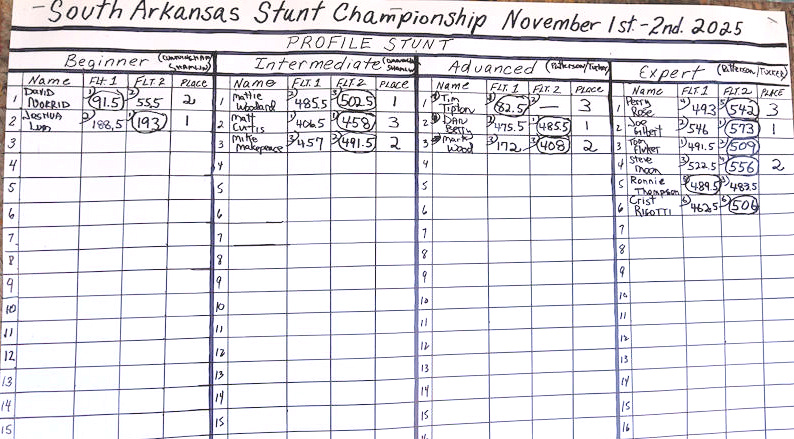 South Arkansas Stunt Championship November 1st.-2nd. 2025
PROFILE STUNT
Beginner
Intermediate
Advanced (Patterson/Tucker)
Expert (Patterson/Tucker)
Name FLT 1 FLT 2 PLACE
1 DAVID 91.5 55.5 2
2 JOSHUA 188.5 193 1
3
4
5
6
7
8
9
10
11
12
13
14
15
Name FLT. 1 FLT. 2 PLACE
1 Mattie 485.5 502.5 1
2 Matt Curtis 406.5 458 3
3 Mike Makepeace 457 491.5 2
4
5
6
7
8
9
10
11
12
13
14
15
Name FLT. 1 FLT. 2 PLACE
1 Tim Tipton 82.5 — 3
2 DAN Berry 475.5 485.5 1
3 Mark Wood 172 408 2
4
5
6
7
8
9
10
11
12
13
14
15
16
Name FLT. 1 FLT. 2 PLACE
1 Perry Rose 493 542 3
2 Joe Gilbert 546 573 1
3 Tom 491.5 509
4 Steve Moon 522.5 556 2
5 Ronnie Thompson 489.5 483.5
6 Crist RIGOTTI 462.5 506
7
8
9
10
11
12
13
14
15
16